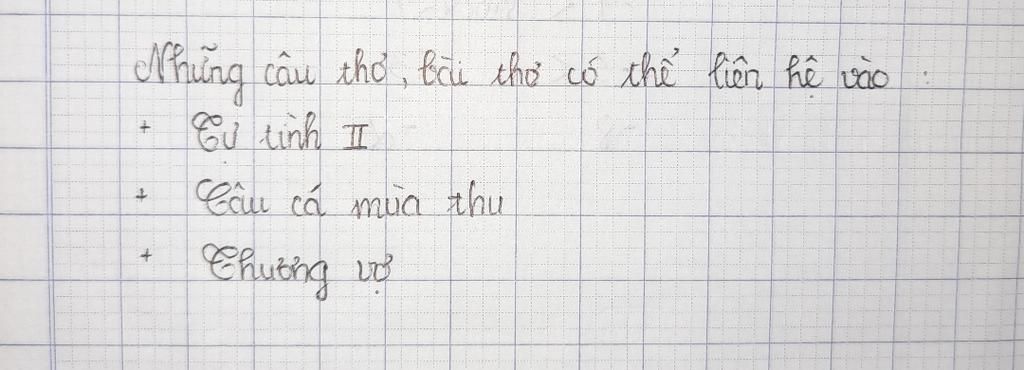 Những câu thơ, bài thơ có thể liên hệ vào :
+ Tự tình II
+ Câu cá mùa thu
+ Thương vợ